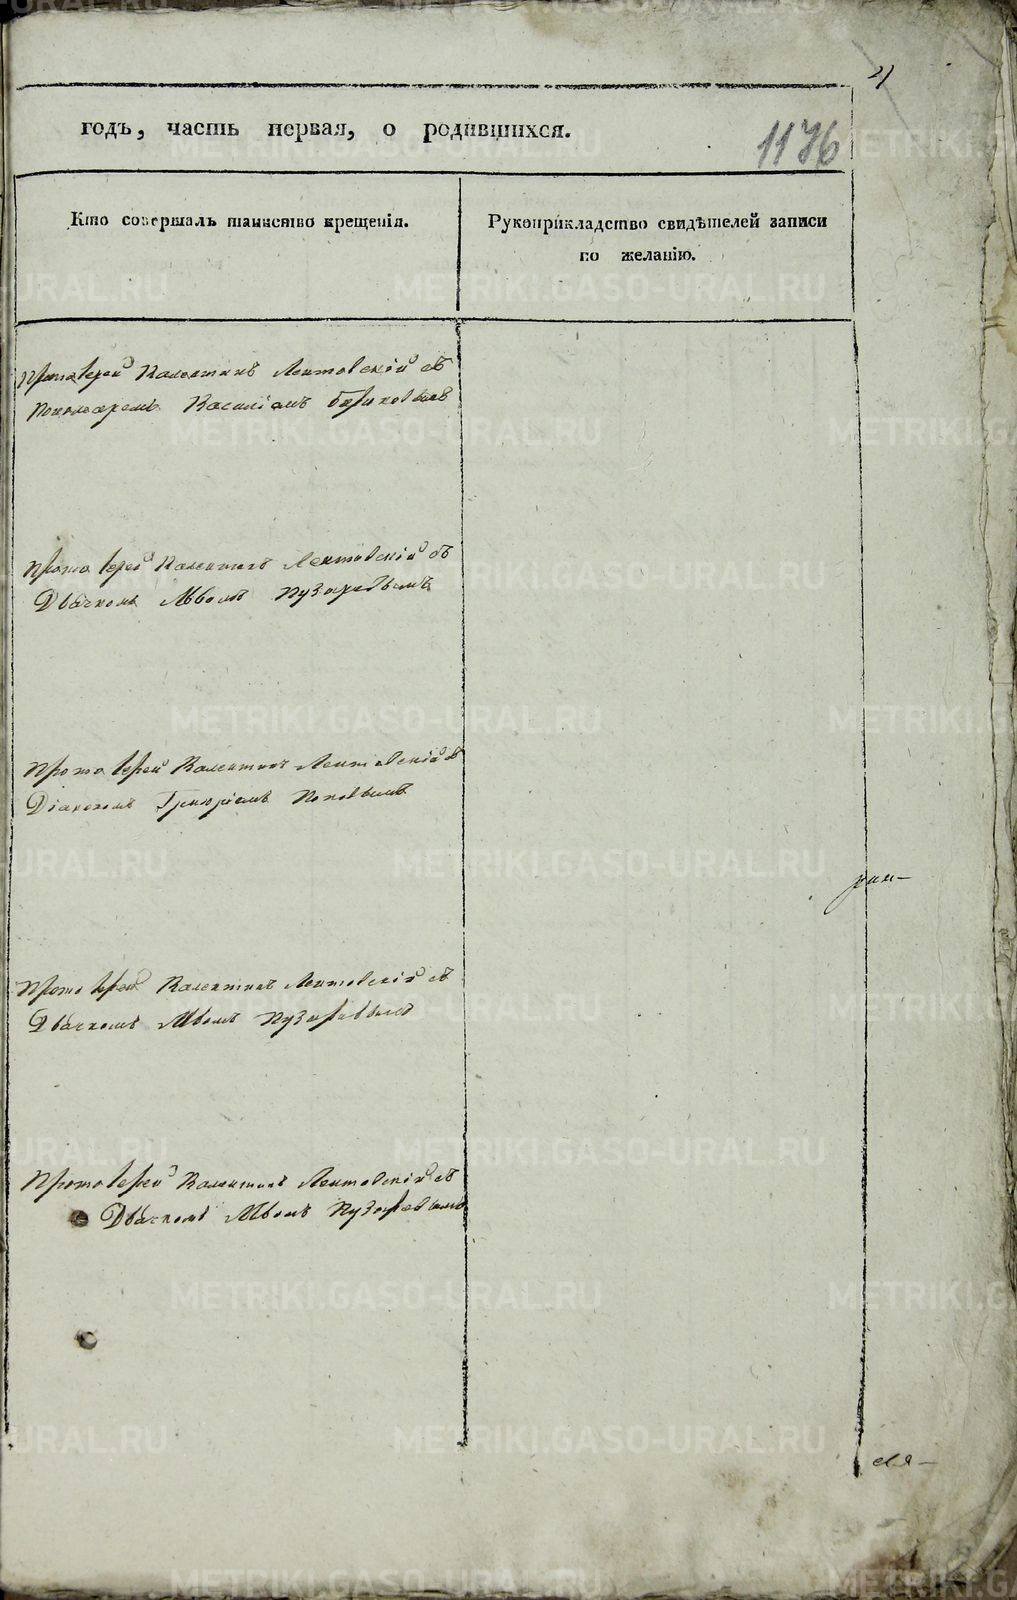 21
годъ, часть первая, о родившихся.
1176
Кто совершалъ таинство крещенія.
Рукоприкладство свидѣтелей записи
по желанію.
Протоіерей Валентинъ Лентовскій съ
Пономаремъ Василіемъ
Протоіерей Валентинъ Лентовскій съ
Дьячкомъ Львомъ Пузыревымъ
Протоіерей Валентинъ Лентовскій съ
Діакономъ Григоріемъ Поповымъ
Протоіерей Валентинъ Лентовскій съ
Дьячкомъ Львомъ Пузыревымъ
Протоіерей Валентинъ Лентовскій съ
Дьячкомъ Львомъ Пузыревымъ
METRIKI.GASO-URAL.RU